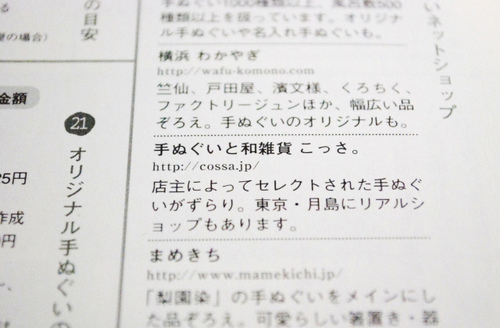 手ぬぐい1000種類以上、風呂敷500
種類以上を扱っています。オリジナ
ル手ぬぐいや名入れ手ぬぐいも。
横浜 わかやぎ
http://wafu-komono.com
竺仙、戸田屋、濱文様、くろちく、
ファクトリージュンほか、幅広い品
ぞろえ。手ぬぐいのオリジナルも。
手ぬぐいと和雑貨 こっさ。
http://cossa.jp/
店主によってセレクトされた手ぬぐ
いがずらり。東京・月島にリアルシ
ョップもあります。
まめきち
http://www.mamekichi.jp/
「梨園染」の手ぬぐいをメインにし
た品ぞろえ。可愛らしい箸置き・器
いネットショップ
の目安
の場合）
金額
21
オリジナル手ぬぐいの
5円
作成
円